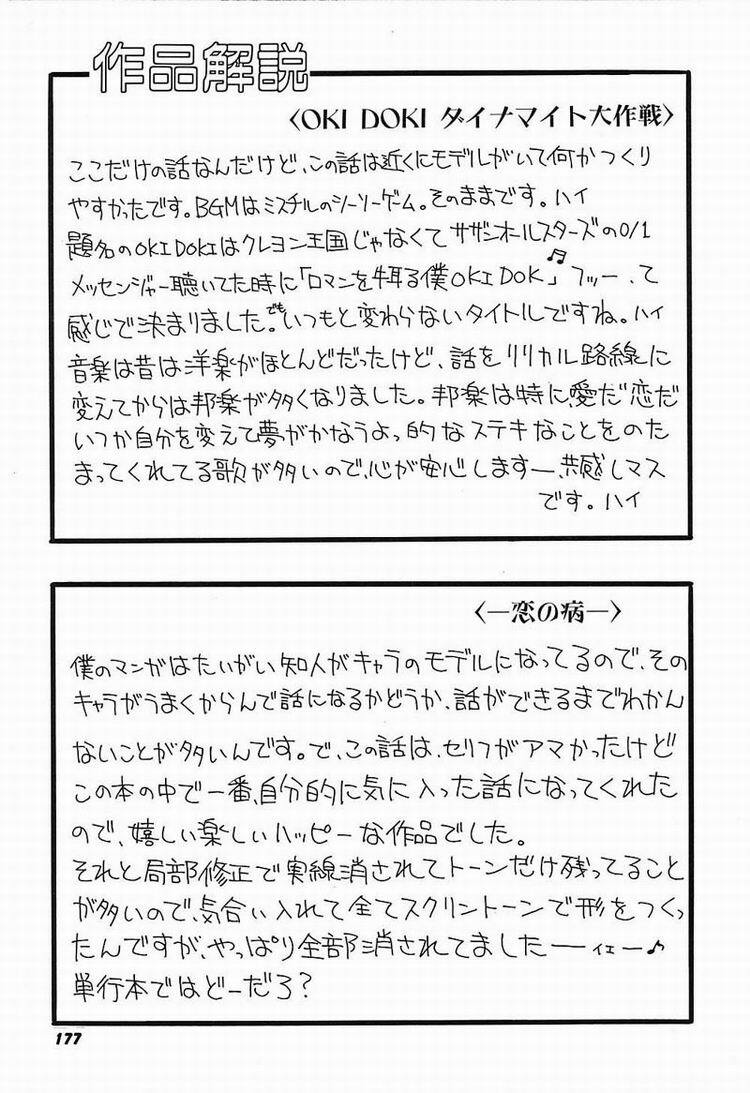 作品解説
〈OKI DOKI ダイナマイト大作戦〉
ここだけの話なんだけど、この話は近くにモデルがいて何かつくり
やすかったです。BGMはミスチルのシーソーゲーム。そのままです。ハイ
題名のOKI DOKIはクレヨン王国じゃなくてサザンオールスターズの0/1
メッセンジャー聴いてた時に「ロマンを牛耳る僕OKI DOK♬」フッー、て
感じで決まりました。でもいつもと変わらないタイトルですね。ハイ
音楽は昔は洋楽がほとんどだったけど、話をリリカル路線に
変えてからは邦楽が多くなりました。邦楽は特に、愛だ"恋だ
いつか自分を変えて夢がかなうよっ的なステキなことをのた
まってくれてる歌が多いので、心が安心します―、共感しマス
です。ハイ
〈―恋の病―〉
僕のマンガはたいがい知人がキャラのモデルになってるので、その
キャラがうまくからんで話になるかどうか、話ができるまでわかん
ないことが多いんです。で、この話は、セリフがアマかったけど
この本の中で一番、自分的に気に入った話になってくれた
ので、嬉しい楽しいハッピーな作品でした。
それと局部修正で実線消されてトーンだけ残ってること
が多いので、気合い入れて全てスクリントーンで形をつくっ
たんですが、やっぱり全部消されてました――ィェー♪
単行本ではどーだろ？
177